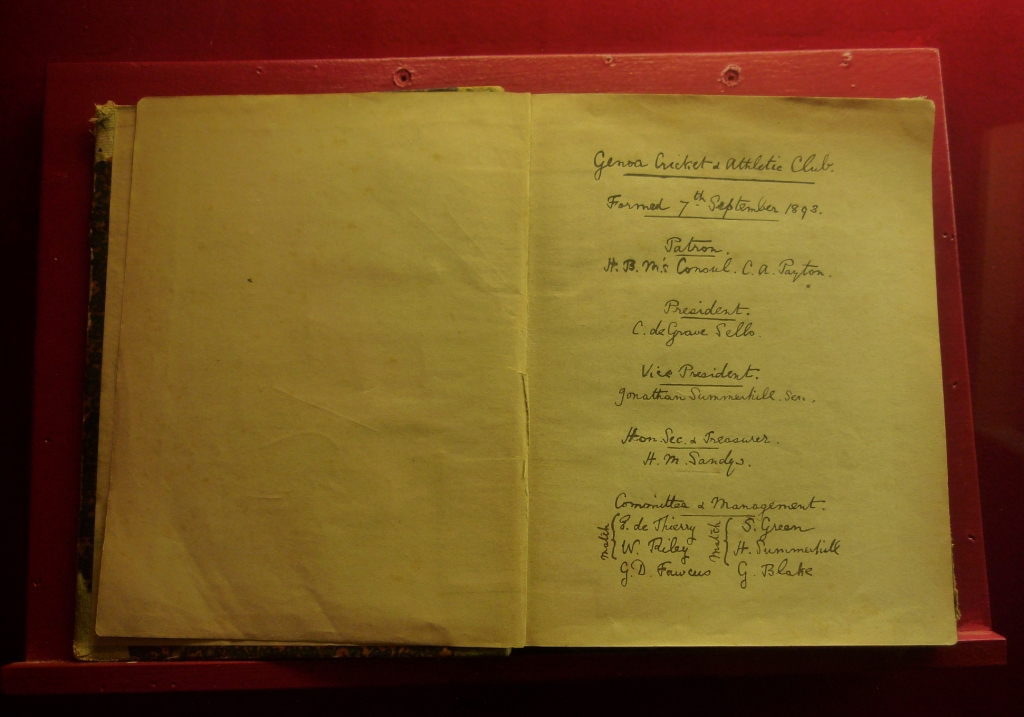 Genoa Cricket & Athletic Club.
Formed 7th September 1893.
Patron.
H. B. M's Consul. C. A. Payton.
President.
C. de Grave Sells.
Vice President.
Jonathan Summerhill. Sen.
Hon Sec. & Treasurer.
H. M. Sandys.
Committee & Management.
match { de Thierry match { S. Green
W. Riley H. Summerhill
G. D. Fawcus G. Blake